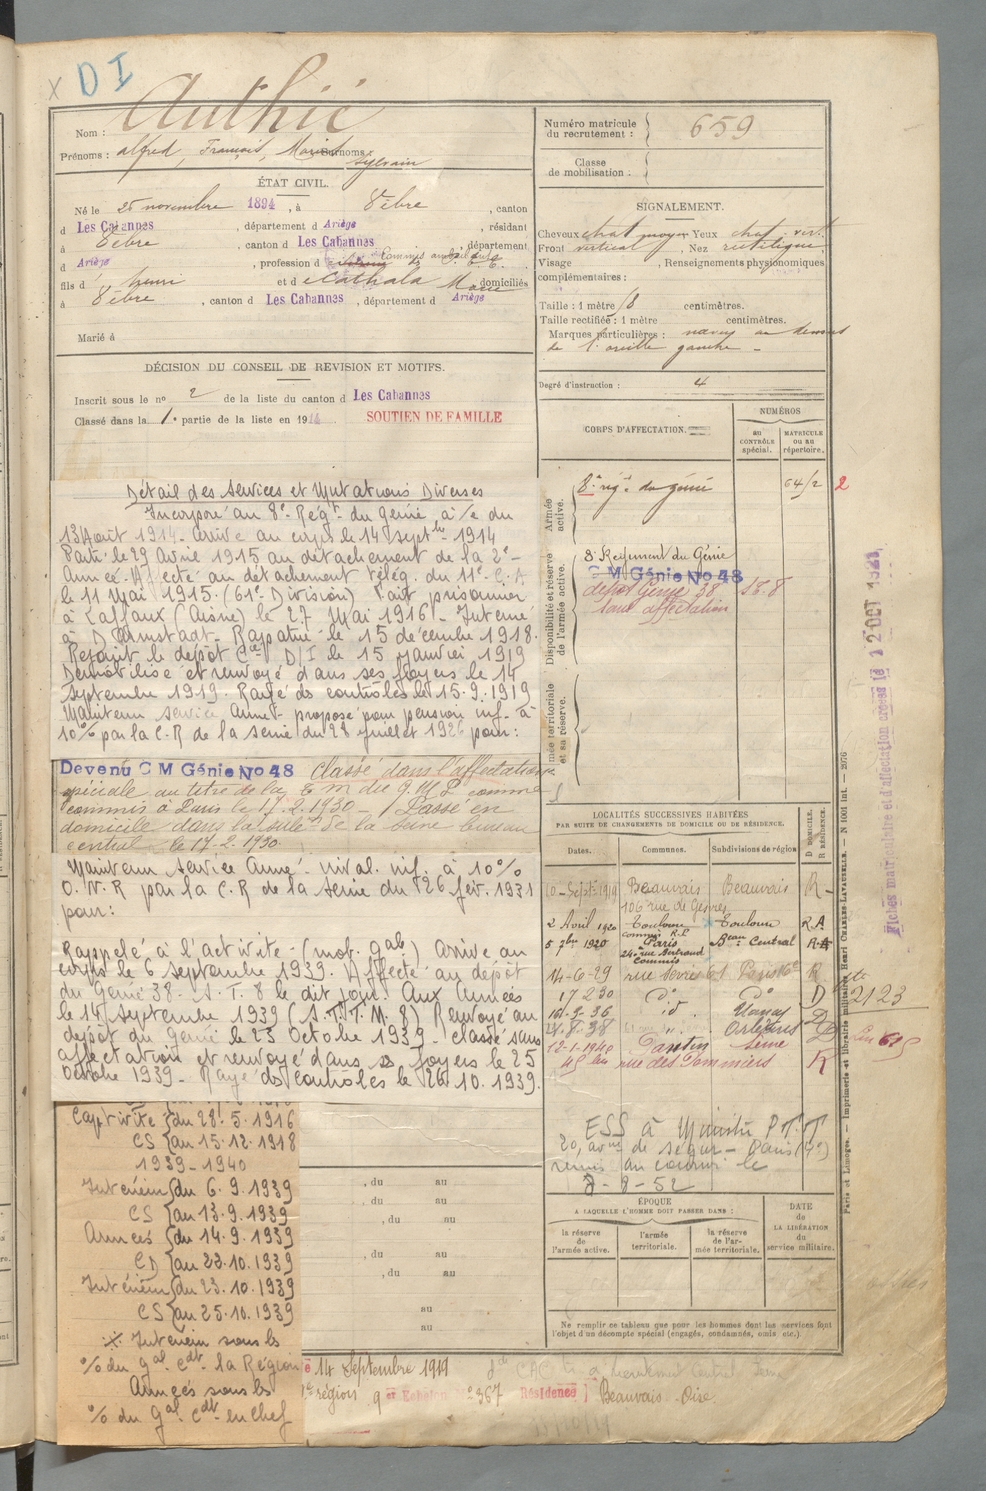 x D I
Authié
Nom :
Prénoms : alfred, François, Surnoms :
Sylvain
ÉTAT CIVIL.
Né le 25 novembre 1894, à Bèbre, canton
d Les Cabannes, département d Ariège, résidant
à Bèbre, canton d Les Cabannes, département
d Ariège, profession d Commis
fils d Henri et d Cathala Marie domiciliés
à Bèbre, canton d Les Cabannes, département d Ariège
Marié à
DÉCISION DU CONSEIL DE REVISION ET MOTIFS.
Inscrit sous le nº 2 de la liste du canton d Les Cabannes
Classé dans la 1e partie de la liste en 1914 SOUTIEN DE FAMILLE
Détail des Services et Mutations Diverses
Incorporé au 8e Régt du génie à/c du
13 Août 1914. Arrivé au corps le 14 Septbre 1914
Parti le 29 Avril 1915 au détachement de la 2e
Armée. Affecté au détachement télég. du 11e C.A
le 11 Mai 1915. (61e Division) Fait prisonnier
à Laffaux (Aisne) le 27 Mai 1916. Interné
à Darmstadt. Rapatrié le 15 décembre 1918.
Rejoint le dépôt Cie D/I le 15 janvier 1919
Démobilisé et renvoyé dans ses foyers le 14
septembre 1919. Rayé ds contrôles le 15.9.1919
Maintenu service Armé - proposé pour pension inf. à
10% par la C.R de la Seine du 28 juillet 1926 pour :
Devenu C M Génie No 48 Classé dans l'affectation
spéciale au titre de la T m du G.M.P comme
commis à Paris le 17.2.1930 - Passé en
domicile dans la sub. de la Seine bureau
central le 17-2.1930
Maintenu Service Armé. inval. inf. à 10%
O.N.R par la C.R de la Seine du 26 fév. 1931
pour :
Rappelé à l'activité - (mob. gale) Arrivé au
corps le 6 septembre 1939. Affecté au dépôt
du Génie 38. S.T. 8 le dit jour. Aux Armées
le 14 Septembre 1939 Renvoyé au
dépôt du Génie le 23 Octobre 1939. Classé sans
affectation et renvoyé dans ses foyers le 25
Octobre 1939. Rayé ds contrôles le 26.10.1939.
Captivité du 28.5.1916
CS au 15.12.1918
1939-1940
Intérieur du 6.9.1939
CS au 13.9.1939
Armées du 14.9.1939
CD au 22.10.1939
Intérieur du 23.10.1939
CS au 25.10.1939
Intérieur sous le
% du gal Cdt la Région
Armées sous le
% du Gal Cdt en chef
, du au
, du au
, du au
, du au
, du au
au
au
14 Septembre 1919
région 9 er Echelon 2367 Résidence Beauvais Oise
Numéro matricule
du recrutement : 659
Classe
de mobilisation :
SIGNALEMENT.
Cheveux chat moyen Yeux chat. vert
Front vertical, Nez rectiligne
Visage , Renseignements physionomiques
complémentaires :
Taille : 1 mètre 18 centimètres.
Taille rectifiée : 1 mètre centimètres.
Marques particulières : naevus au dessous
de l'oreille gauche -
Degré d'instruction : 4
CORPS D'AFFECTATION.
NUMÉROS
au
CONTRÔLE
spécial.
MATRICULE
ou au
répertoire.
Armée
active.
8e rég.t du génie 64/2 2
Disponibilité et réserve
de l'armée active.
8e Régiment du Génie
C M Génie No 48
dépôt Génie 38 S.T. 8
sans affectation
Armée territoriale
et sa réserve.
LOCALITÉS SUCCESSIVES HABITÉES
PAR SUITE DE CHANGEMENTS DE DOMICILE OU DE RÉSIDENCE.
Dates. Communes. Subdivisions de région
D DOMICILE.
R RÉSIDENCE.
10-Sept-1919 Beauvais Beauvais R-
106 rue de Gesvres
2 Avril 1920 Toulouse Toulouse R.A
commis R.P
5 7bre 1920 Paris Beau Central R-A
24 rue Bertrand
Commis
14-6-29 rue Sèvres 61 Paris R
17 2 30 do do D 2123
16.9.36 id. D
24.8.38 Orléans D
12-1-1940 Pantin Seine
45 bis rue des Pommiers R
ESS à Ministre P.T.T
20, avue de Ségur - Paris (7e)
remis au courrier le
8-8-52
ÉPOQUE
A LAQUELLE L'HOMME DOIT PASSER DANS :
la réserve
de
l'armée active.
l'armée
territoriale.
la réserve
de l'ar-
mée territoriale.
DATE
de
LA LIBÉRATION
du
service militaire.
Ne remplir ce tableau que pour les hommes dont les services font
l'objet d'un décompte spécial (engagés, condamnés, omis etc.).
Paris et Limoges. — Imprimerie et librairie militaires Henri CHARLES-LAVAUZELLE. — N 1003 int. — 2076
Fiches matriculaire et d'affectation créées le 12 OCT 1928